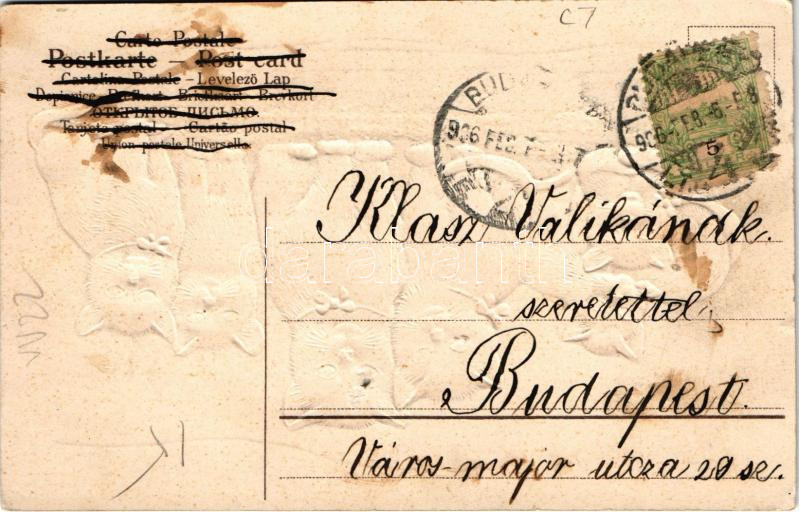 C7
Carte Postale
Postkarte – Post card
Cartolina Postale – Levelező Lap
Dopisnice – Brefkort – Briefkaart – Brevkort
ОТКРЫТОЕ ПИСЬМО
Tarjeta postal – Cartão postal
Union postale Universelle
BUDAPEST
906 FEB. 7
906 FEB. 6
5
Klasz Valikának.
szeretettel
Budapest.
Város-major utcza 28 sz.
darabanth